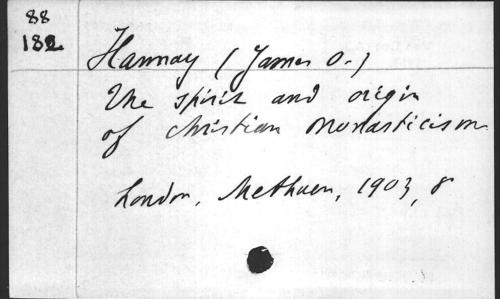 88
182
Hannay (James O.)
The spirit and origin
of Christian Monasticism
London, Methuen, 1903, 8